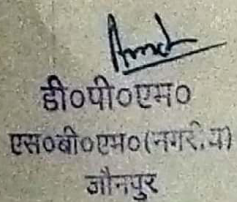 डी०पी०एम०
एस०बी०एम०(नगरीय)
जौनपुर